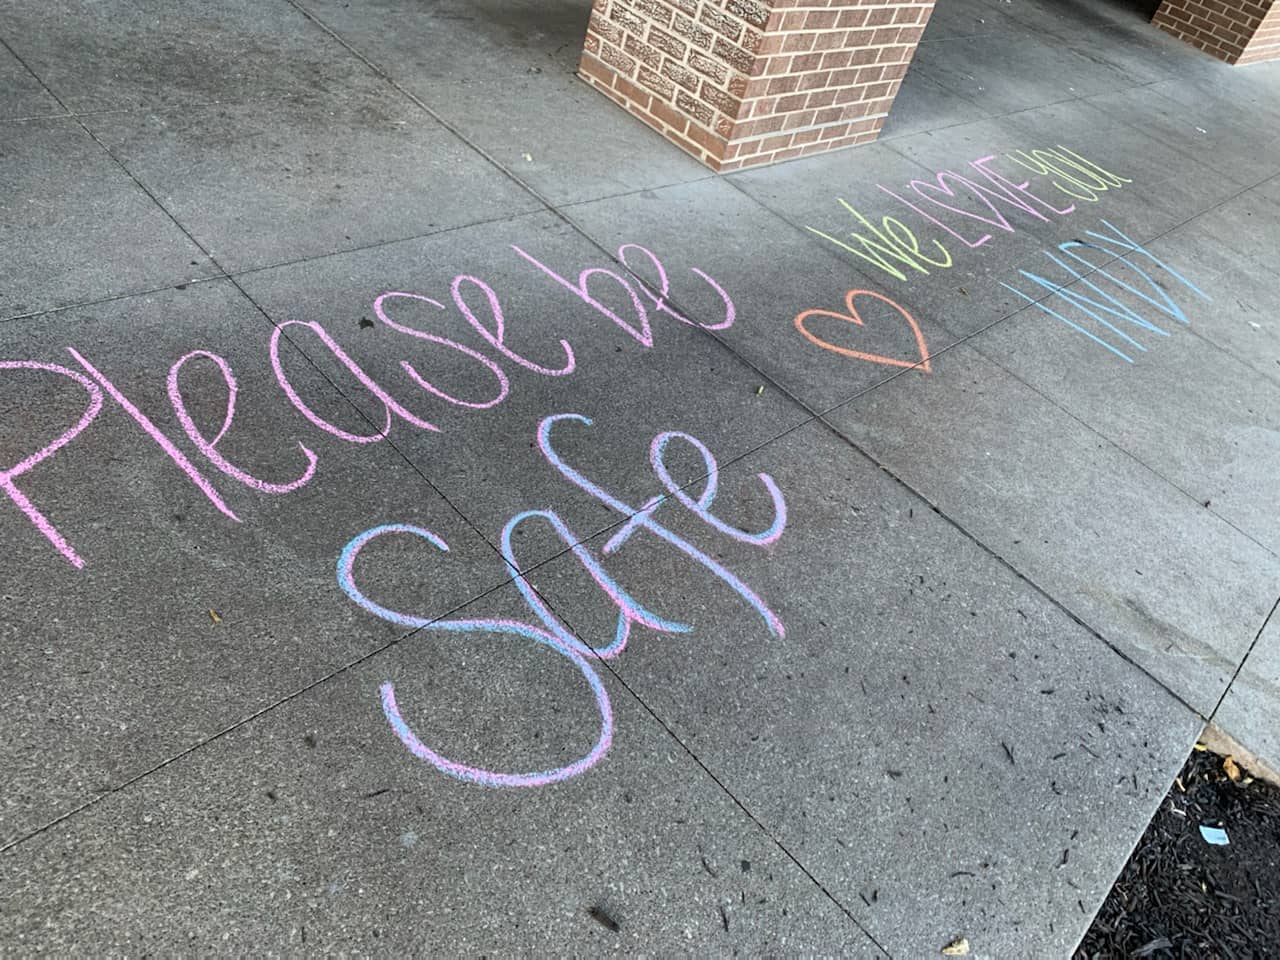 Please be
Safe
We LOVE you
INDY